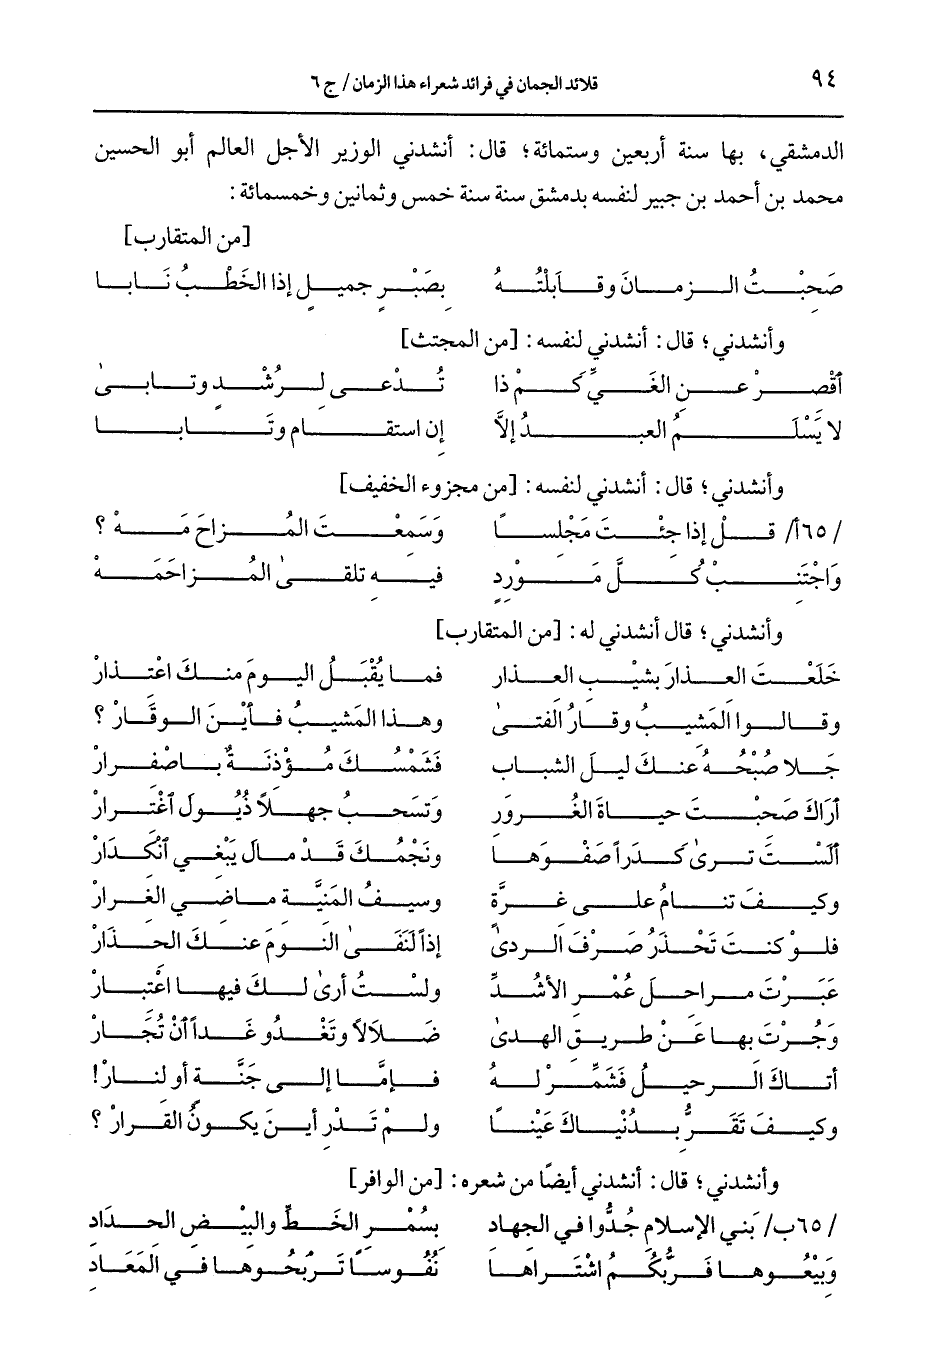 ٩٤
قلائد الجمان في فرائد شعراء هذا الزمان/ ج ٦
الدمشقي، بها سنة أربعين وستمائة؛ قال: أنشدني الوزير الأجل العالم أبو الحسين
محمد بن أحمد بن جبير لنفسه بدمشق سنة سنة خمس وثمانين وخمسمائة:
[من المتقارب]
صَحِبْتُ الزمانَ وقابَلْتُهُ بصَبْرٍ جميلٍ إذا الخَطْبُ نَابا
وأنشدني؛ قال: أنشدني لنفسه: [من المجتث]
أقْصِرْ عن الغَيِّ كَمْ ذا تُدْعى لِرُشْدٍ وتابىٰ
لا يَسْلَمُ العبدُ إلاَّ إن استقامَ وتَابا
وأنشدني؛ قال: أنشدني لنفسه: [من مجزوء الخفيف]
/٦٥أ/ قُلْ إذا جِئْتَ مَجْلِساً وَسَمِعْتَ المُزاحَ مَهْ؟
وَاجْتَنِبْ كُلَّ مَوْرِدٍ فيهِ تلقىٰ المُزاحَمَهْ
وأنشدني؛ قال أنشدني له: [من المتقارب]
خَلَعْتَ العذارَ بشَيْبِ العذار فما يُقْبَلُ اليومَ منكَ اعْتِذارْ
وقالوا المَشيبُ وقارُ الفتىٰ وهذا المَشيبُ فأيْنَ الوقَارْ؟
جَلا صُبْحُهُ عنكَ ليلَ الشباب فشَمْسُكَ مُؤْذنَةٌ باصْفرارْ
أرَاكَ صَحِبْتَ حياةَ الغُرور وَتسْحبُ جهلاً ذُيُولَ اغْتِرارْ
ألسْتَ ترىٰ كَدَراً صَفْوَها ونَجْمُكَ قَدْ مالَ يَبْغي انْكدَارْ
وكيفَ تنامُ على غِرَّةٍ وسيفُ المَنيَّةِ ماضي الغِرارْ
فلو كنتَ تَحْذَرُ صَرْفَ الردىٰ إذاً لَنَفىٰ النومَ عنكَ الحذَارْ
عَبَرْتَ مراحلَ عُمْرِ الأشُدِّ ولسْتُ أرىٰ لكَ فيها اعْتِبارْ
وَجُرْتَ بها عَنْ طريقِ الهدىٰ ضَلالاً وتَغْدُو غَداً أنْ تُجَارْ
أتاكَ الرحيلُ فَشَمِّرْ لهُ فإمَّا إلى جَنَّةٍ أو لنارْ!
وكيفَ تَقَرُّ بدُنْياكَ عَيْناً ولمْ تَدْرِ أينَ يكونُ القرارْ؟
وأنشدني؛ قال: أنشدني أيضًا من شعره: [من الوافر]
/٦٥ب/ بَني الإسلام جُدُّوا في الجهاد بسُمْرِ الخَطِّ والبيْضِ الحدَادِ
وَبيْعُوها فَرَبُّكُمُ اشْتَراها نُفُوساً تَرْبَحُوها في المَعَادِ